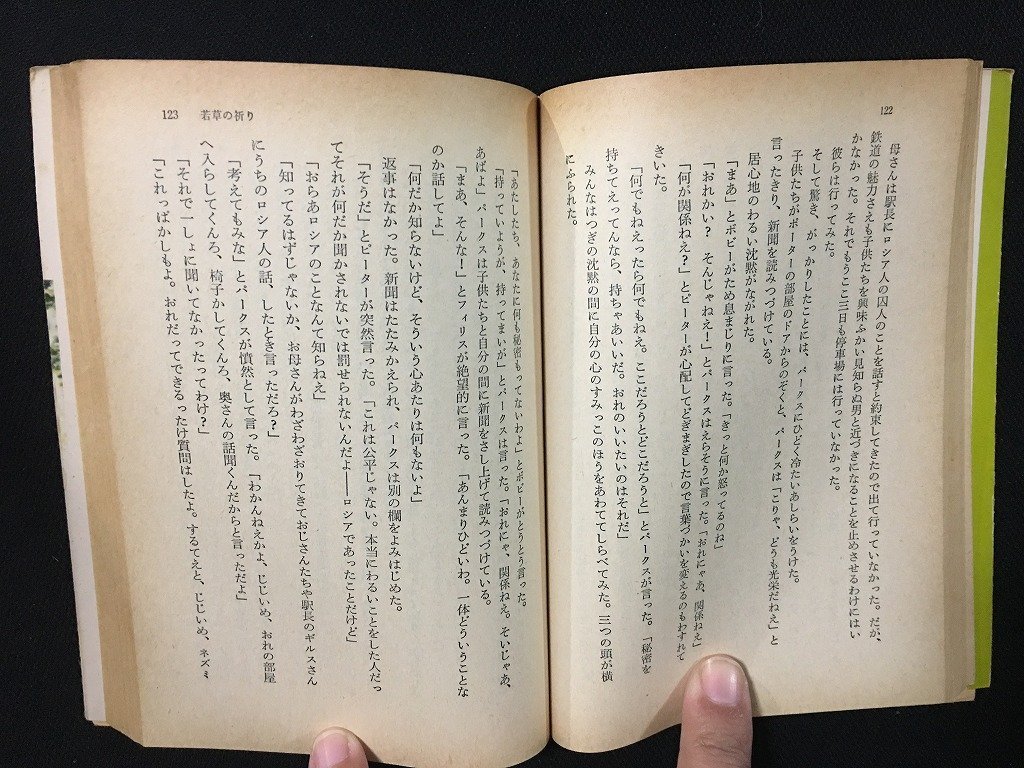 122
母さんは駅長にロシア人の囚人のことを話すと約束してきたので出て行っていなかった。だが、
鉄道の魅力さえも子供たちを興味ぶかい見知らぬ男と近づきになることを止めさせるわけにはい
かなかった。それでもうここ三日も停車場には行っていなかった。
彼らは行ってみた。
そして驚き、がっかりしたことには、パークスにひどく冷たいあしらいをうけた。
子供たちがポーターの部屋のドアからのぞくと、パークスは「こりゃ、どうも光栄だねえ」と
言ったきり、新聞を読みつづけている。
居心地のわるい沈黙がながれた。
「まあ」とボビーがため息まじりに言った。「きっと何か怒ってるのね」
「おれかい？　そんじゃねえ！」とパークスはえらそうに言った。「おれにゃあ、関係ねえ」
「何が関係ねえ？」とピーターが心配してどぎまぎしたので言葉づかいを変えるのもわすれて
きいた。
「何でもねえったら何でもねえ。ここだろうとどこだろうと」とパークスが言った。「秘密を
持ちてえってんなら、持ちゃあいいだ。おれのいいたいのはそれだ」
みんなはつぎの沈黙の間に自分の心のすみっこのほうをあわててしらべてみた。三つの頭が横
にふられた。
123　若草の祈り
「あたしたち、あなたに何も秘密もってないわよ」とボビーがとうとう言った。
「持っていようが、持ってまいが」とパークスは言った。「おれにゃ、関係ねえ。そいじゃあ、
あばよ」パークスは子供たちと自分の間に新聞をさし上げて読みつづけている。
「まあ、そんな！」とフィリスが絶望的に言った。「あんまりひどいわ。一体どういうことな
のか話してよ」
「何だか知らないけど、そういう心あたりは何もないよ」
返事はなかった。新聞はたたみかえられ、パークスは別の欄をよみはじめた。
「そうだ」とピーターが突然言った。「これは公平じゃない。本当にわるいことをした人だっ
てそれが何だか聞かされないでは罰せられないんだよ――ロシアであったことだけど」
「おらあロシアのことなんて知らねえ」
「知ってるはずじゃないか、お母さんがわざわざおりてきておじさんたちや駅長のギルスさん
にうちのロシア人の話、したとき言っただろ？」
「考えてもみな」とパークスが憤然として言った。「わかんねえかよ、じじいめ、おれの部屋
へ入らしてくんろ、椅子かしてくんろ、奥さんの話聞くんだからと言っただよ」
「それで一しょに聞いてなかったってわけ？」
「これっぱかしもよ。おれだってできるったけ質問はしたよ。するてえと、じじいめ、ネズミ